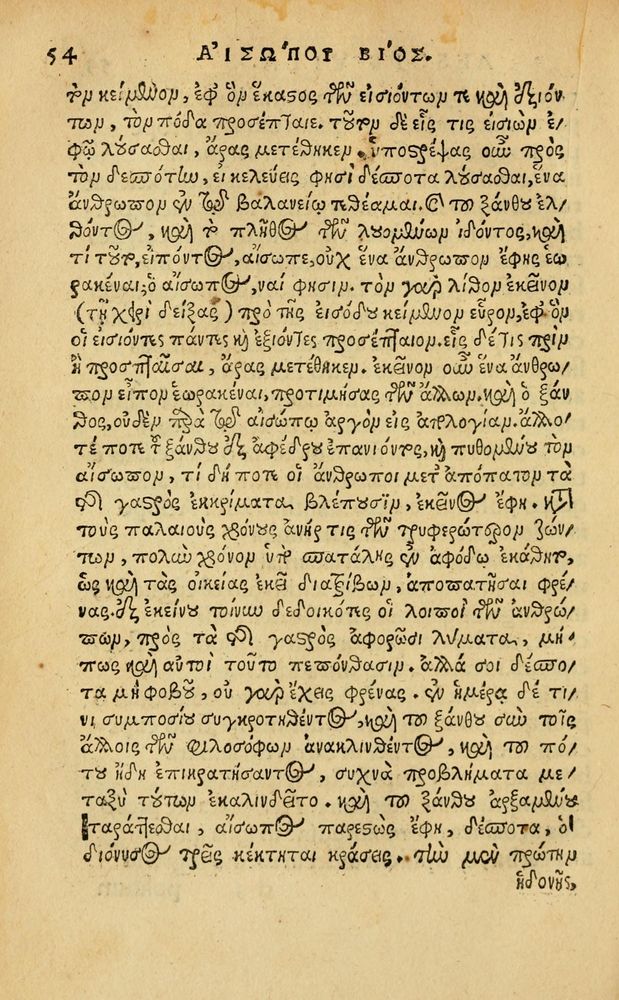 54 ΑἸΣΩ´ΠΟΥ ΒΙ´ΟΣ.
τὸν κείμενον, ἐφ᾽ ὃν ἕκαστος τῶν εἰσιόντων τε καὶ ἐξιόν/
των, τὸν πόδα προσέπταιε. τοῦτον δὲ εἷς τις εἰσιὼν ἐ/
φῷ λούσασθαι, ἄρας μετέθηκεν. ὑποστρέψας οὖν πρὸς
τὸν δεσπότην, εἰ κελεύεις φησὶ δέσποτα λούσασθαι, ἕνα
ἄνθρωπον ἐν τῷ βαλανείῳ τεθέαμαι. καὶ τοῦ ξάνθου ἐλ/
θόντος, καὶ τὸ πλῆθος τῶν λουομένων ἰδόντος, καὶ
τί τοῦτο, εἰπόντος, αἴσωπε, οὐχ ἕνα ἄνθρωπον ἔφης ἑω
ρακέναι; ὁ αἴσωπος, ναί φησιν. τὸν γὰρ λίθον ἐκεῖνον
(τῇ χειρὶ δείξας) πρὸ τῆς εἰσόδου κείμενον εὗρον, ἐφ᾽ ὃν
οἱ εἰσιόντες πάντες κὴ ἐξιόντες προσέπταιον. εἷς δέ τις πρὶν
ἢ προσπταῖσαι, ἄρας μετέθηκεν. ἐκεῖνον οὖν ἕνα ἄνθρω/
πον εἶπον ἑωρακέναι, προτιμήσας τῶν ἄλλων. καὶ ὁ ξάν
θος, οὐδὲν παρὰ τῷ αἰσώπῳ ἀργὸν εἰς ἀπολογίαν. ἄλλο/
τέ ποτε τοῦ ξάνθου ἐξ ἀφέδρου ἐπανιόντος, κὴ πυθομένου τὸν
αἴσωπον, τί δή ποτε οἱ ἄνθρωποι μετ᾽ ἀπόπατον τὰ
τῆς γαστρὸς ἐκκρίματα βλέπουσιν, ἐκεῖνος ἔφη. κατὰ
τοὺς παλαιοὺς χρόνους ἀνήρ τις τῶν τρυφερώτερον ζών/
των, πολὺν χρόνον ὑπὸ σπατάλης ἐν ἀφόδῳ ἐκάθητο,
ὡς καὶ τὰς οἰκείας ἐκεῖ διατρίβων, ἀποπατῆσαι φρέ/
νας. ἐξ ἐκείνου τοίνυν δεδοικότες οἱ λοιποὶ τῶν ἀνθρώ/
πων, πρὸς τὰ τῆς γαστρὸς ἀφορῶσι λύματα, μή/
πως καὶ αὐτοὶ τοῦτο πεπόνθασιν. ἀλλά σοι δέσπο/
τα μὴ φοβοῦ, οὐ γὰρ ἔχεις φρένας. ἐν ἡμέρᾳ δέ τι/
νι συμποσίου συγκροτηθέντος, καὶ τοῦ ξάνθου σὺν τοῖς
ἄλλοις τῶν φιλοσόφων ἀνακλινθέντος, καὶ τοῦ πό/
του ἤδη ἐπικρατήσαντος, συχνὰ προβλήματα με/
ταξὺ τούτων ἐκαλινδεῖτο. καὶ τοῦ ξάνθου ἀρξαμένου
ταράττεσθαι, αἴσωπος παρεστὼς ἔφη, δέσποτα, ὁ
διόνυσος τρεῖς κέκτηται κράσεις. τὴν μὲν πρώτην
ἡδονῆς,